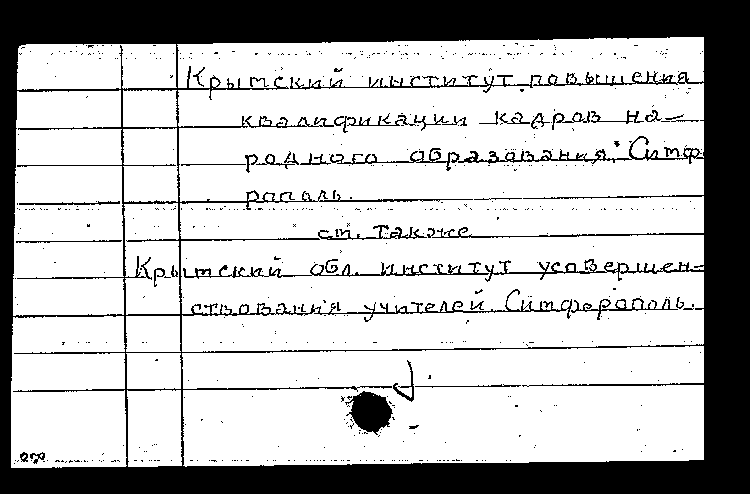 Крымский институт повышения
квалификации кадров на-
родного образования. Симфе
рополь.
см. также
Крымский обл. институт усовершен-
ствования учителей. Симферополь.